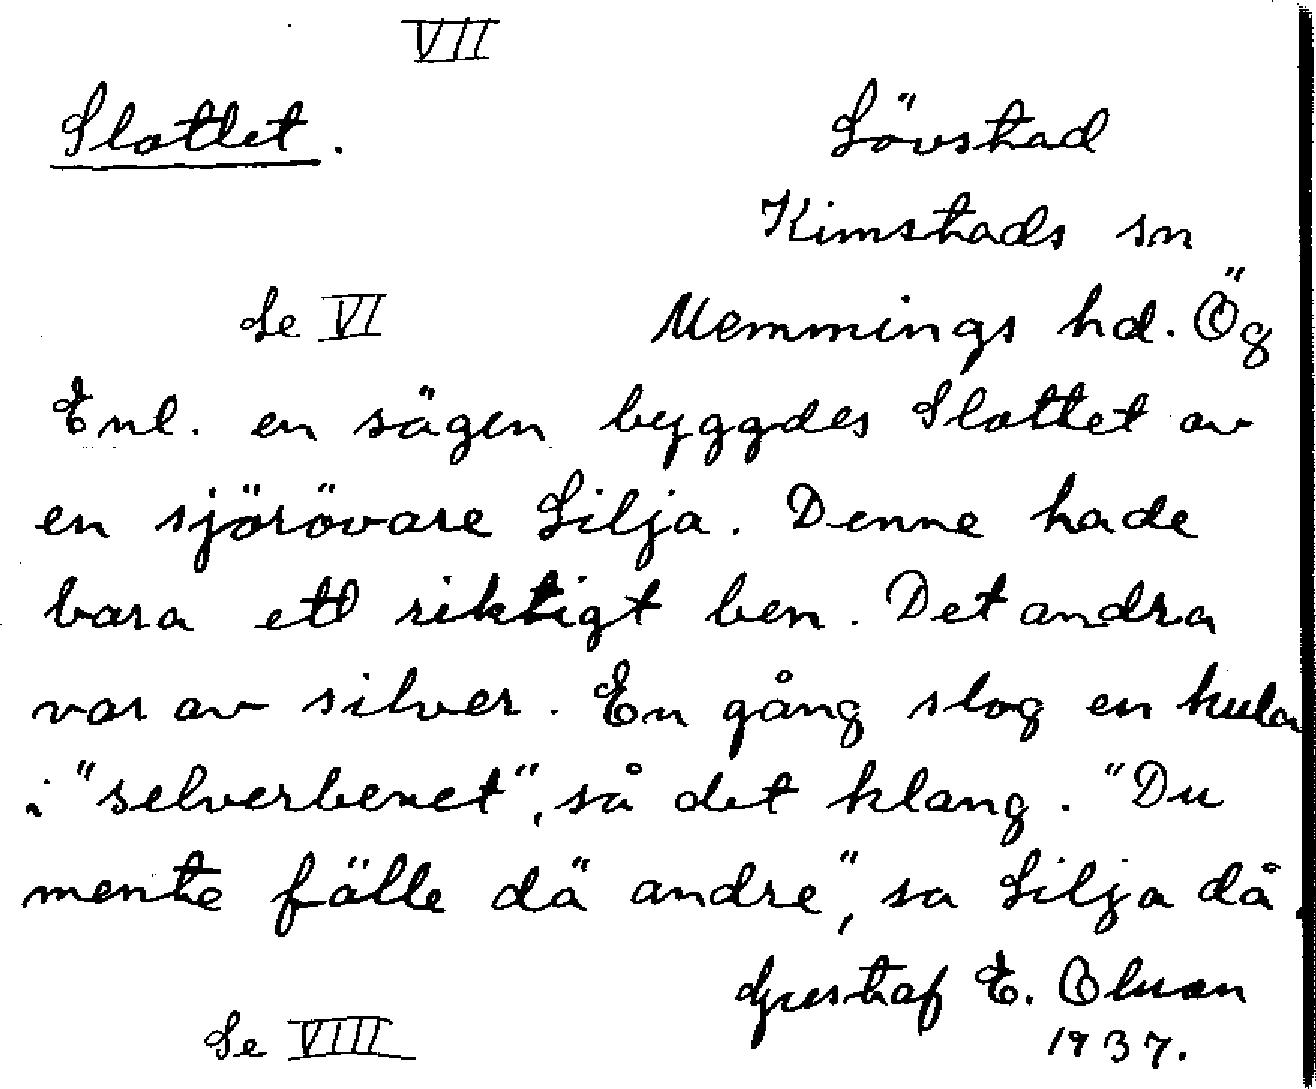 VII
Slottet.
Lövstad
Kimstads sn
Se VI
Memmings hd. Ög
Enl. en sägen byggdes Slottet av
en sjörövare Lilja. Denne hade
bara ett riktigt ben. Det andra
var av silver. En gång slog en kula
i "selverbenet", så det klang. "Du
mente fälle dä andre", sa Lilja då.
Gustaf E. Olsson
1937.
Se VIII